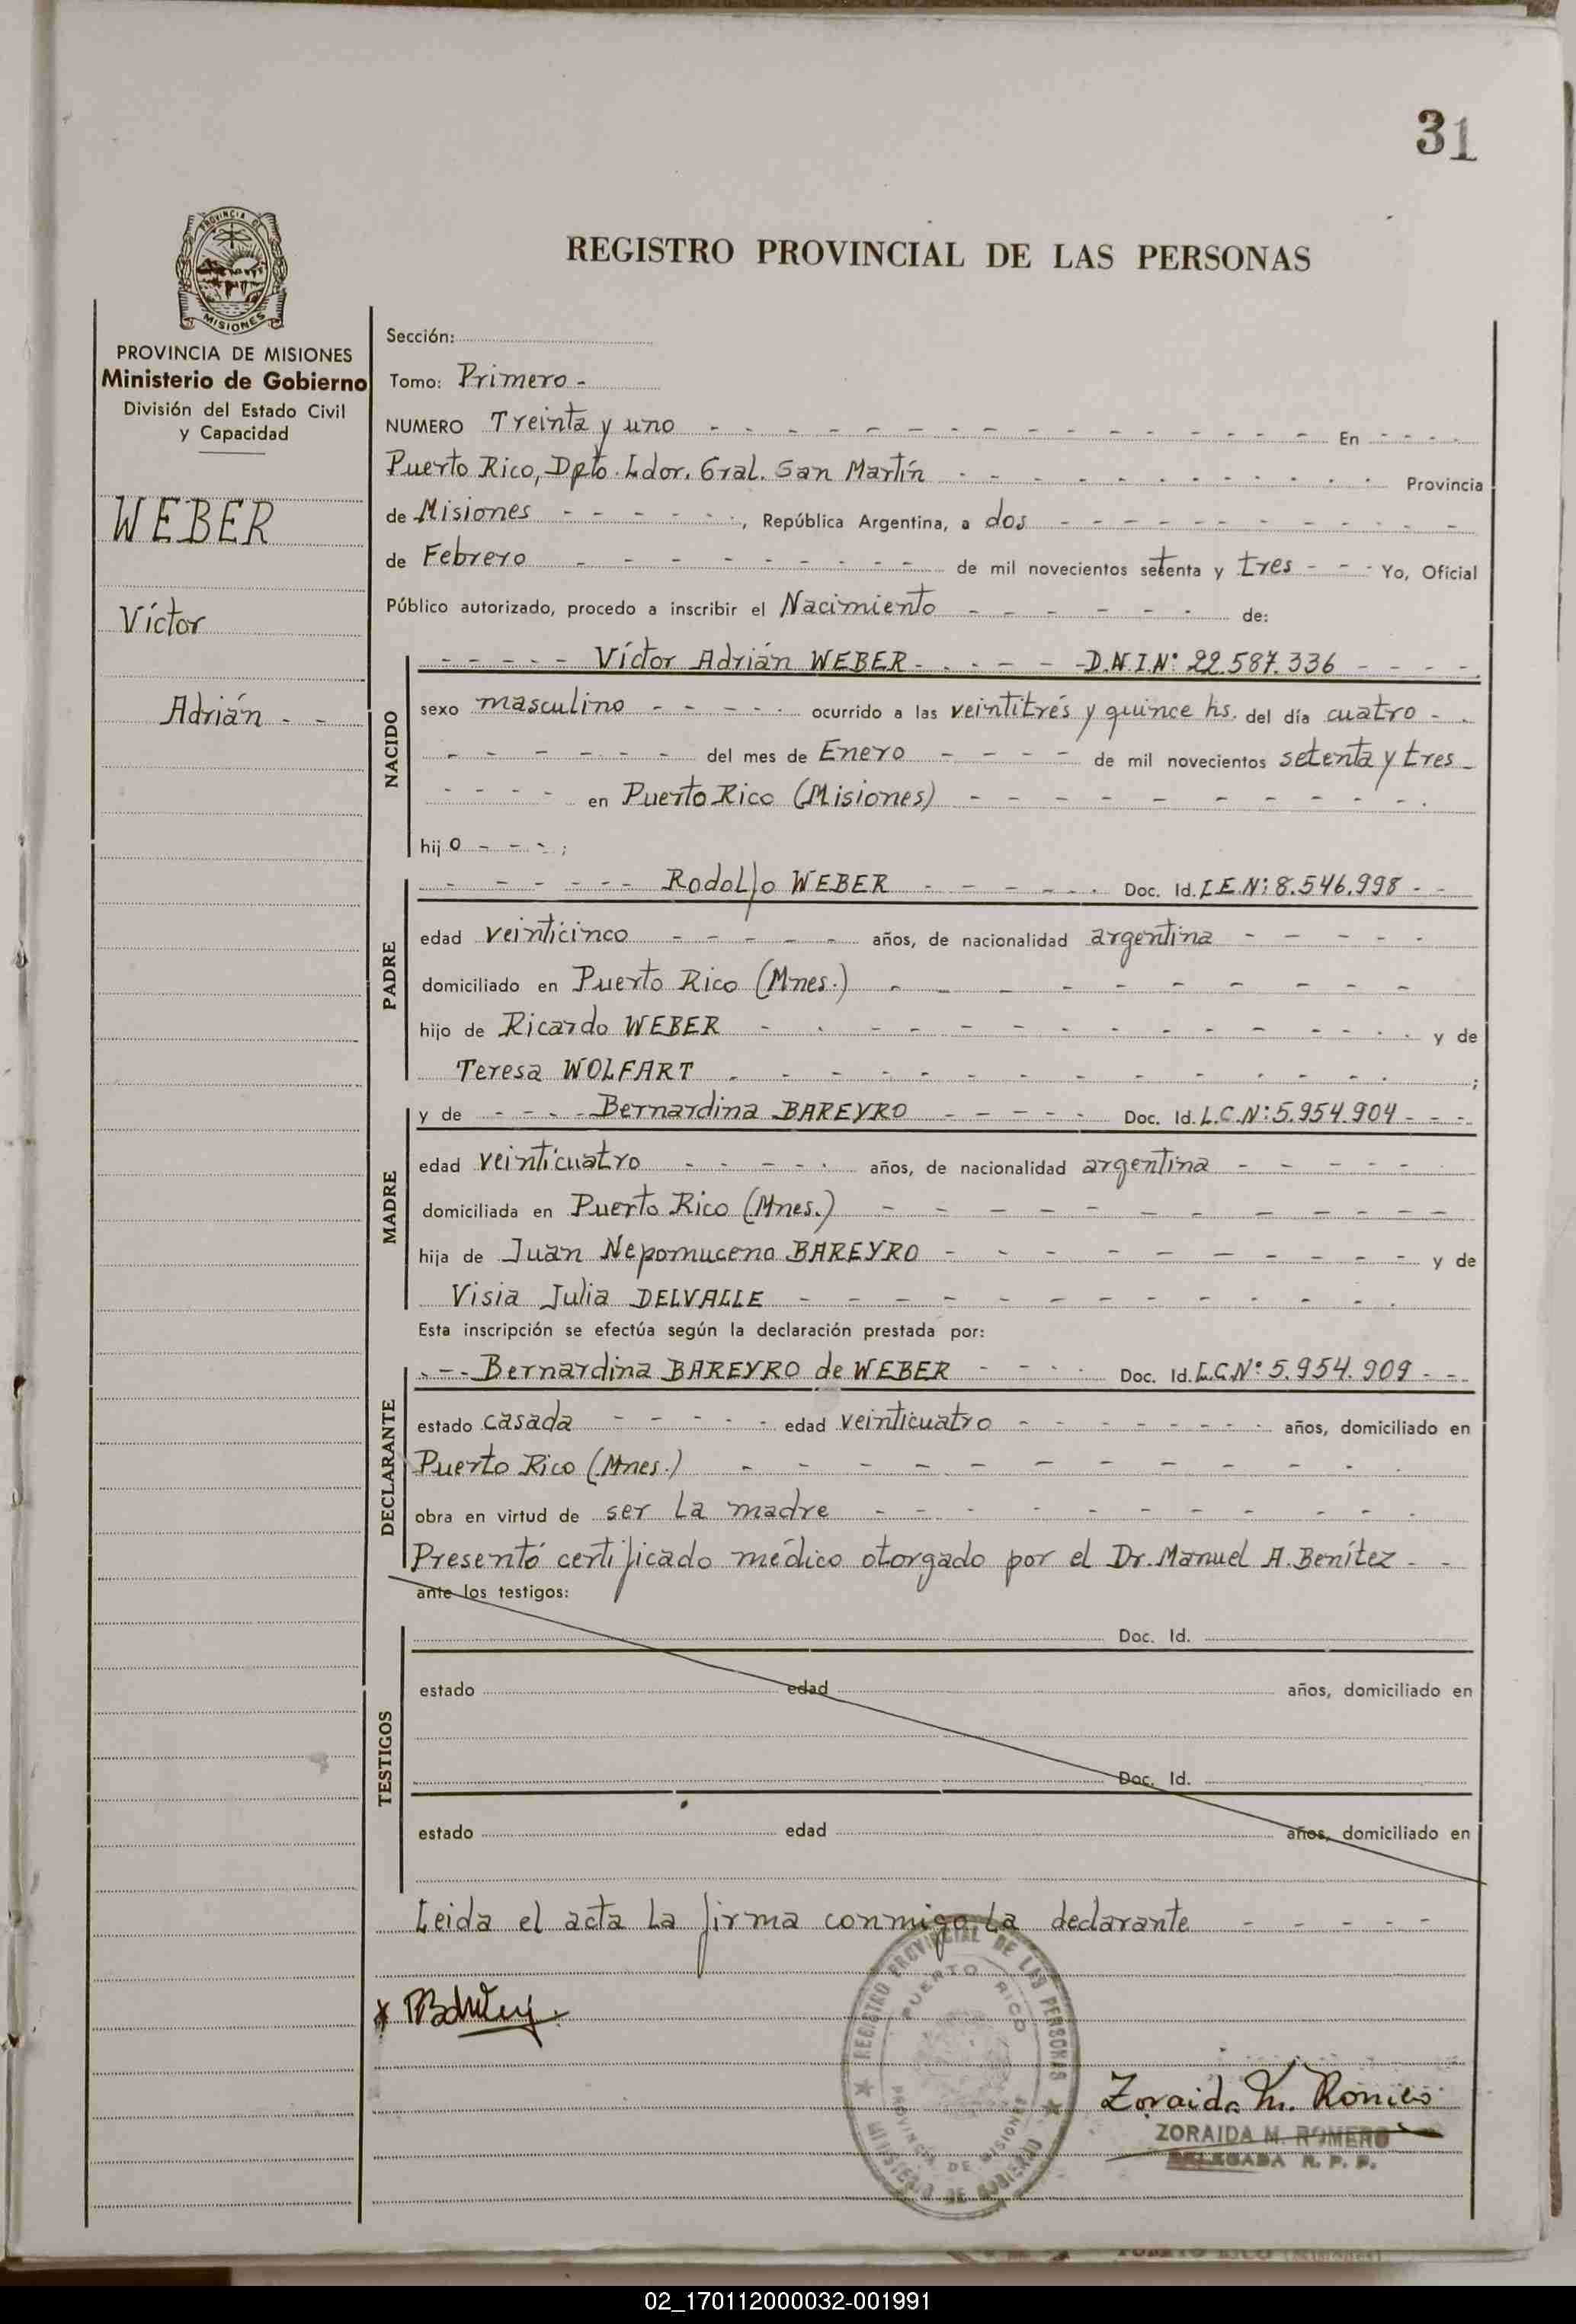 31
REGISTRO PROVINCIAL DE LAS PERSONAS
PROVINCIA DE MISIONES
Ministerio de Gobierno
División del Estado Civil
y Capacidad
WEBER
Víctor
Adrián - -
Sección:
Tomo: Primero -
NUMERO Treinta y uno - - - - En - - - -
Puerto Rico, Dpto. Ldor. Gral. San Martín - - - - Provincia
de Misiones - - - -, República Argentina, a dos - - - -
de Febrero - - - - de mil novecientos setenta y tres - - - Yo, Oficial
Público autorizado, procedo a inscribir el Nacimiento - - - - de:
NACIDO
- - - - - Víctor Adrián WEBER - - - - - D.N.I.N° 22.587.336 - - - -
sexo masculino - - - - ocurrido a las veintitrés y quince hs. del día cuatro - -
- - - - del mes de Enero - - - - de mil novecientos setenta y tres -
- - - - en Puerto Rico (Misiones) - - - -
hijo - - - ;
PADRE
- - - - Rodolfo WEBER - - - - Doc. Id. L.E.N: 8.546.998 - -
edad veinticinco - - - - años, de nacionalidad argentina - - - -
domiciliado en Puerto Rico (Mnes.) - - - -
hijo de Ricardo WEBER - - - - y de
Teresa WOLFART - - - - ;
MADRE
y de - - - - Bernardina BAREYRO - - - - Doc. Id. L.C.N: 5.954.904 - - -
edad veinticuatro - - - - años, de nacionalidad argentina - - - -
domiciliada en Puerto Rico (Mnes.) - - - -
hija de Juan Nepomuceno BAREYRO - - - - y de
Visia Julia DELVALLE - - - -
Esta inscripción se efectúa según la declaración prestada por:
DECLARANTE
- - - Bernardina BAREYRO de WEBER - - - - Doc. Id. L.C.N° 5.954.909 - - -
estado casada - - - - edad veinticuatro - - - - años, domiciliado en
Puerto Rico (Mnes.) - - - -
obra en virtud de ser la madre - - - -
Presentó certificado médico otorgado por el Dr. Manuel A. Benítez - -
ante los testigos:
TESTIGOS
Doc. Id.
estado edad años, domiciliado en
Doc. Id.
estado edad años, domiciliado en
Leida el acta la firma conmigo la declarante - - - -
REGISTRO PROVINCIAL DE LAS PERSONAS
PUERTO RICO
PROVINCIA DE MISIONES
MINISTERIO DE GOBIERNO
Zoraida M. Romero
ZORAIDA M. ROMERO
DELEGADA R. P. P.
02_170112000032-001991